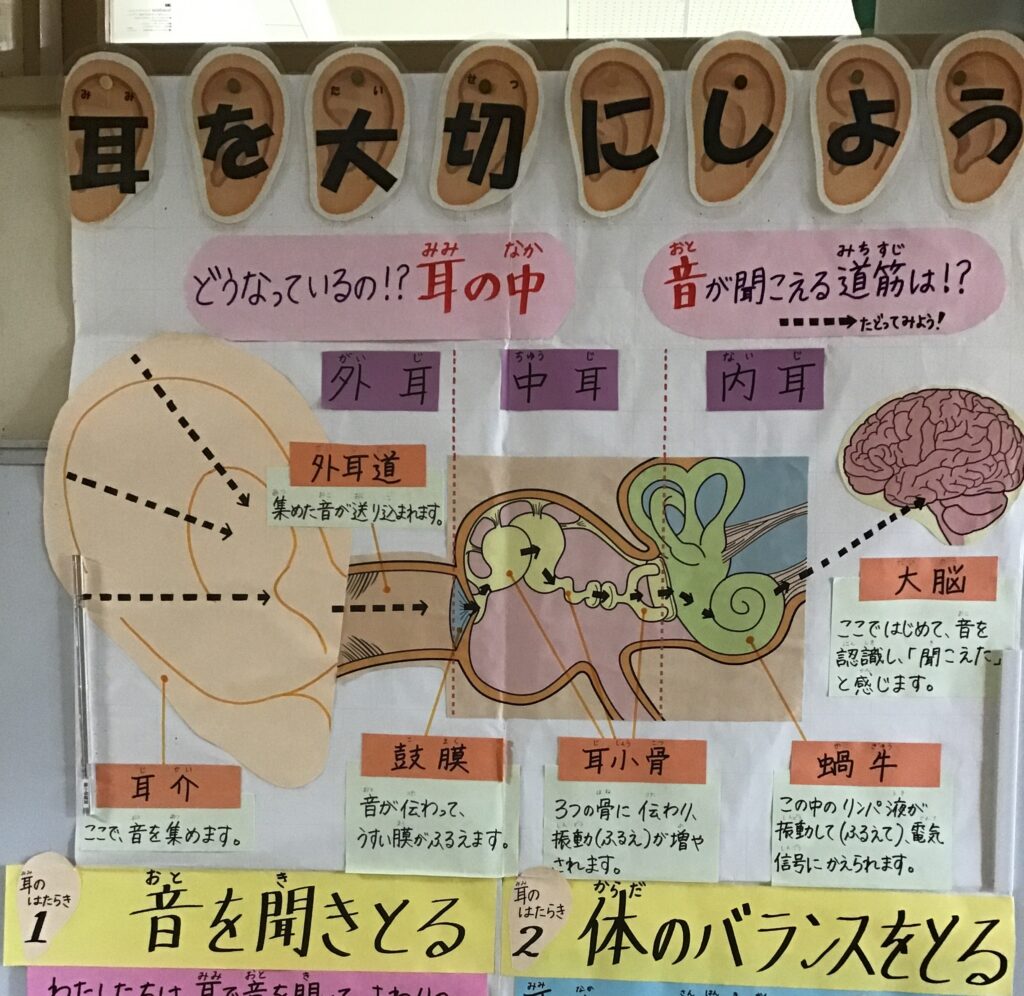 耳を大切にしよう
どうなっているの!? 耳の中
音が聞こえる道筋は!?
たどってみよう!
外耳
中耳
内耳
外耳道
集めた音が送り込まれます。
大脳
ここではじめて、音を
認識し、「聞こえた」
と感じます。
耳介
ここで、音を集めます。
鼓膜
音が伝わって、
うすい膜がふるえます。
耳小骨
3つの骨に伝わり、
振動(ふるえ)が増や
されます。
蝸牛
この中のリンパ液が
振動して(ふるえて)、電気
信号にかえられます。
耳の
はたらき
1
音を聞きとる
耳の
はたらき
2
体のバランスをとる
わたしたちは耳で音を聞いて